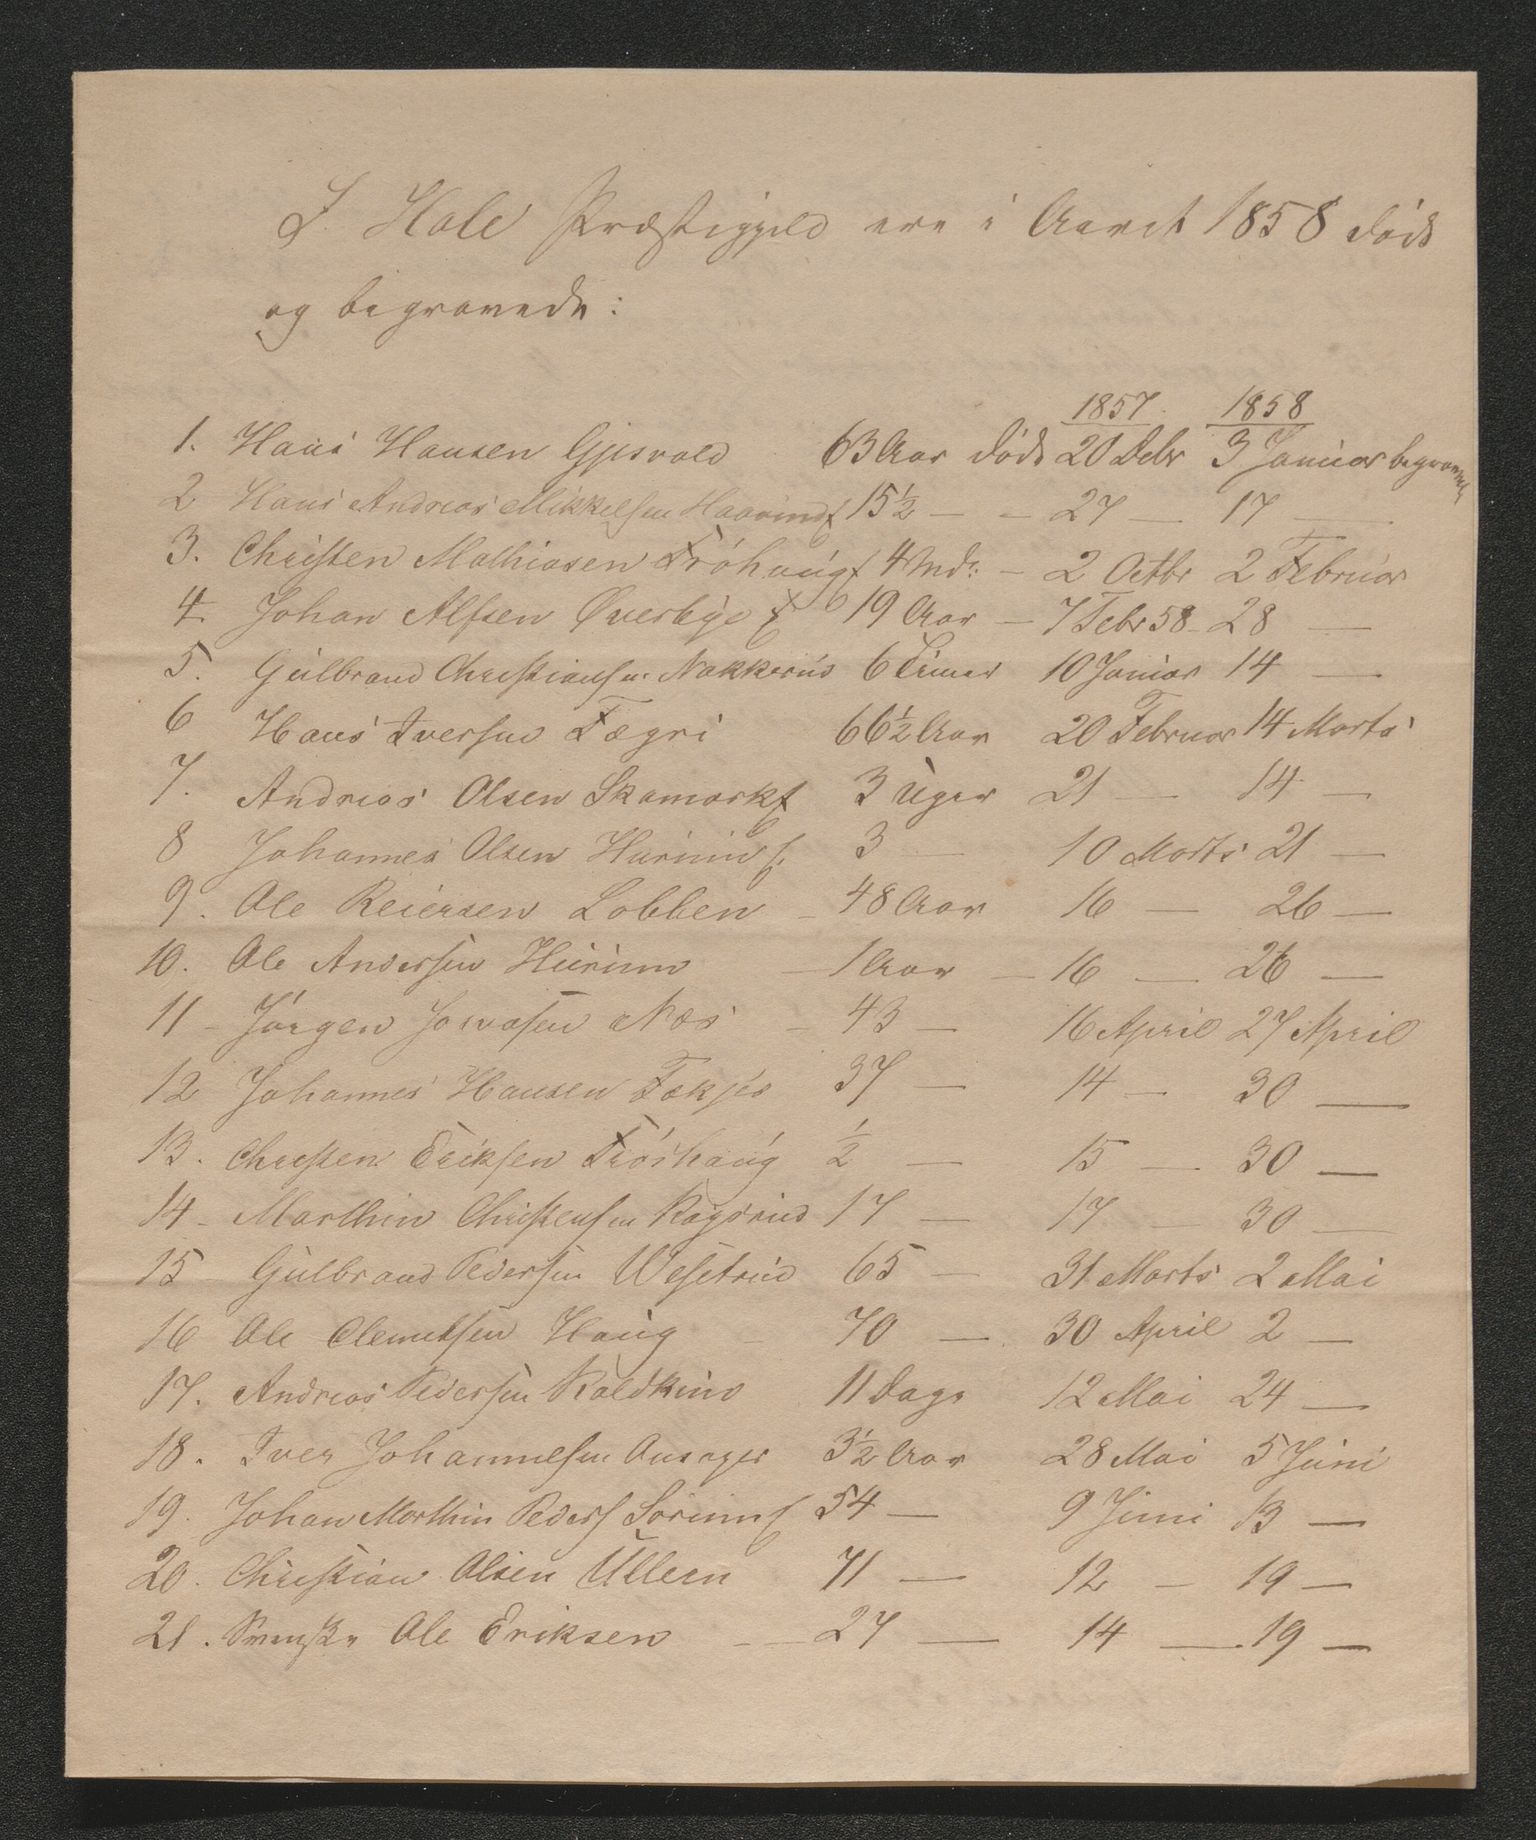 I Hole Præstegjeld ere i Aaret 1858 døde
og begravede:
1857. 1858
1. Hans Hansen Gjesvold 63 Aar døde 20 Debr 3 Januar begravede
2 Hans Andreas Mikkelsen 15½ — - 27 — 17 —
3. Christen Mathiasen Frøhaug 4 Md: - 2 Octbr 2 Februar
4. Johan Alfsen Øverbye 19 Aar — 7 Febr 58 - 28 —
5. Gulbrand Christiansen Nakkerud 6 Timer 10 Januar 14 —
6 Hans Iversen Fægri 66½ Aar 20 Februar 14 Marts
7. Andreas Olsen Skamark 3 Uger 21 — 14 —
8 Johannes Olsen 3 — 10 Marts 21 —
9. Ole Reiersen Lobben - 48 Aar 16 — 26 —
10. Ole Andersen Hurum — 1 Aar — 16 — 26 —
11 - Jørgen Jonasen Næs - 43 — 16 April 27 April
12 Johannes Hansen 37 — 14 — 30 —
13. Christen Eriksen Frøshaug ½ — 15 — 30 —
14 - Marthin Christensen 17 — 17 — 30 —
15 - Gulbrand Pedersen Wesetrud 65 — 31 Marts 2 Mai
16 Ole Clemetsen Haug - 70 — 30 April 2 —
17. Andreas Pedersen 11 Dage 12 Mai 24 —
18. Iver Johannesen 3½ Aar 28 Mai 5 Juni
19. Johan Marthin Peders 54 — 9 Juni 13 —
20. Christian Olsen Ullern 71 — 12 — 19 —
21. Svenske Ole Eriksen — 27 — 14 — 19 —